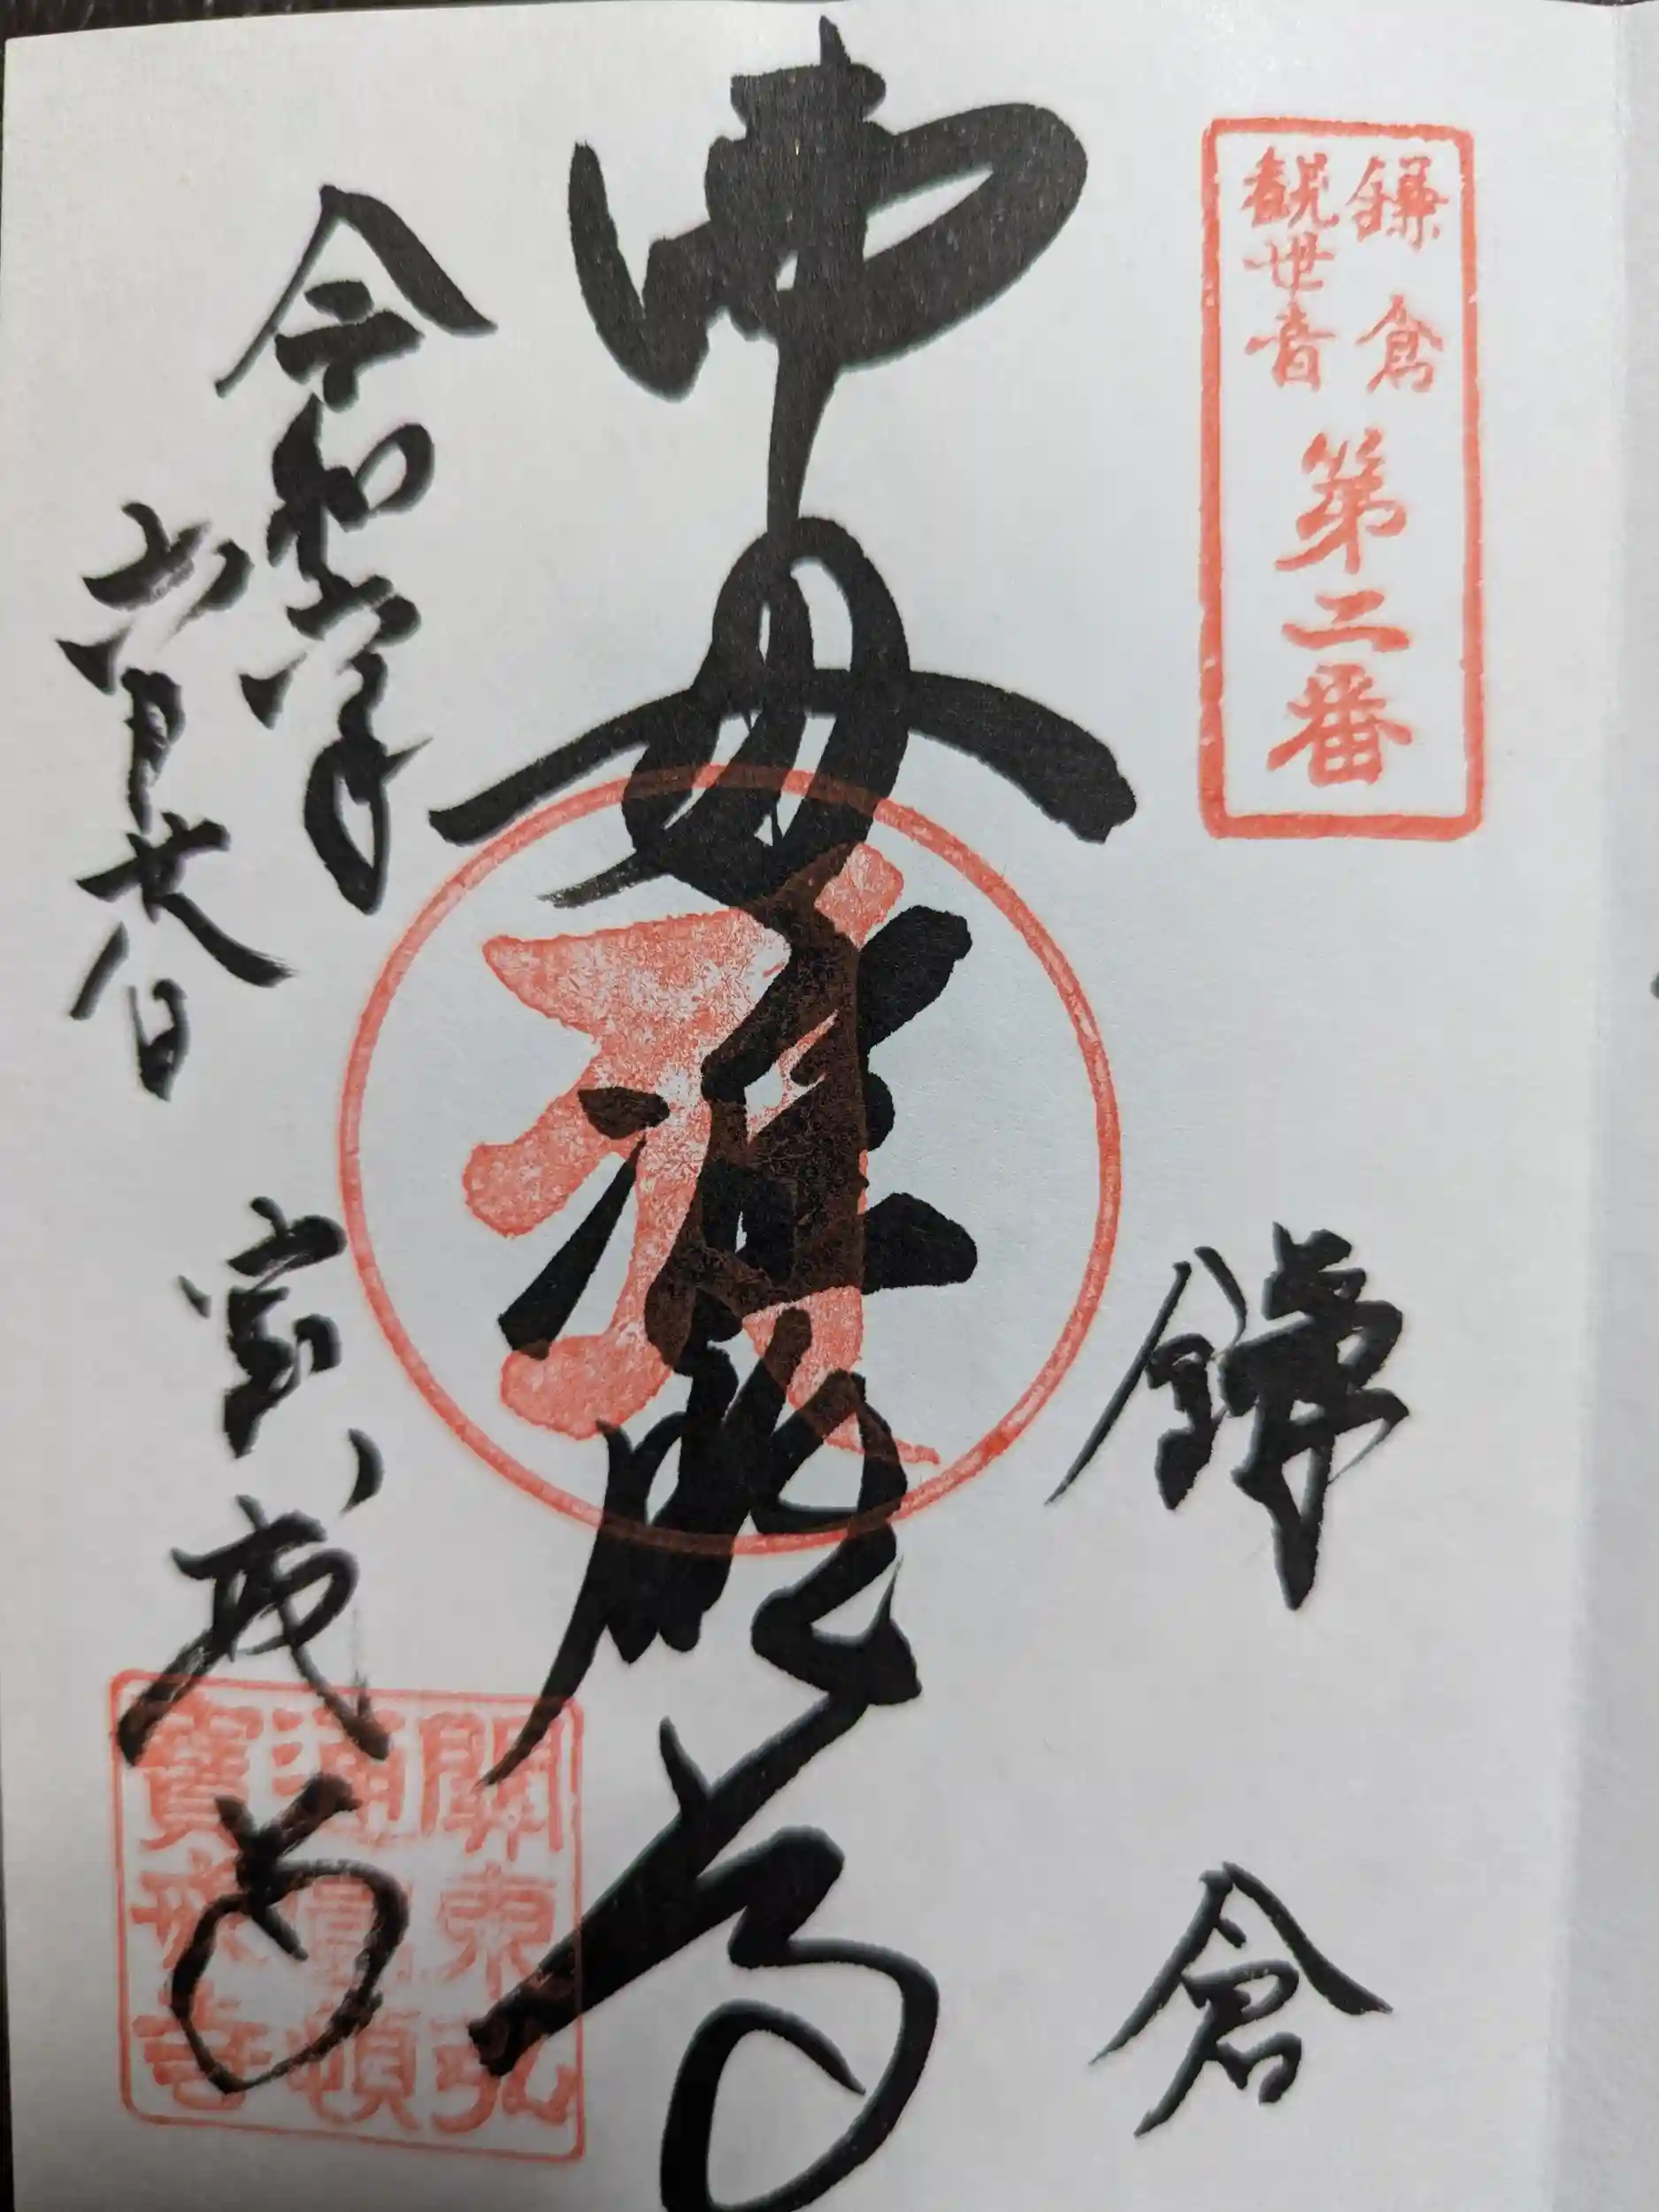 鎌倉
観世音
第二番
鎌倉
佛母准胝尊
令和六年
六月廿八日
宝戒寺
關東弘
通圓頓
寶戒寺